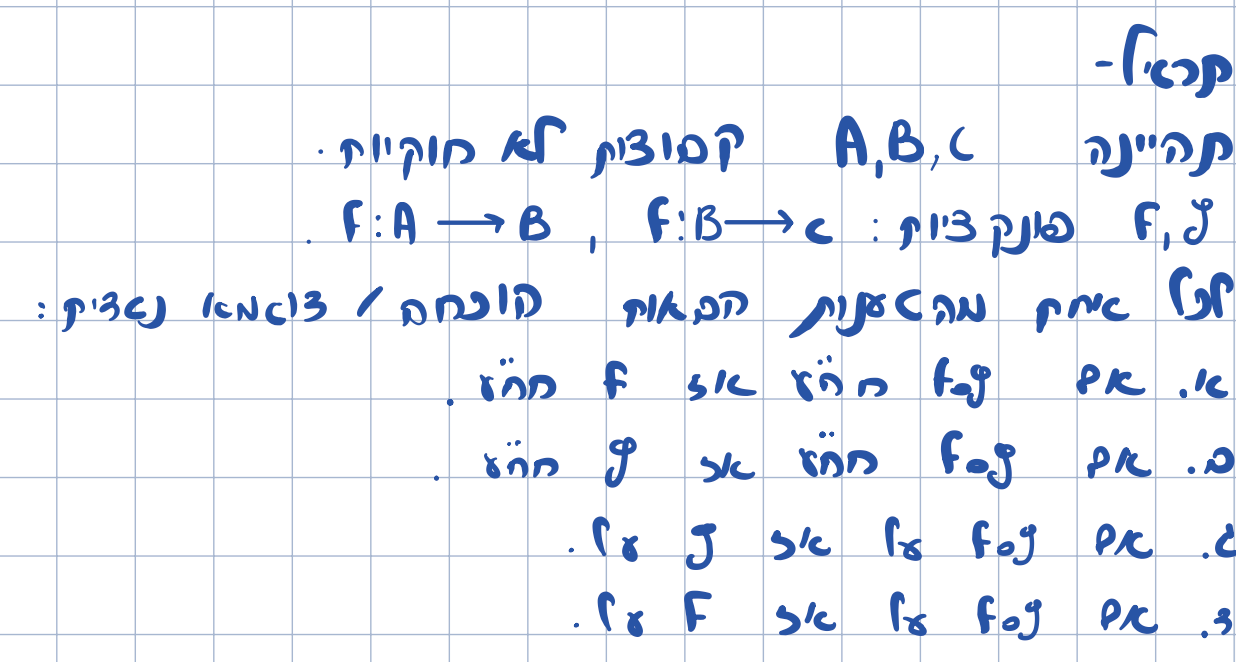 תרגיל-
תהיינה A,B,C קבוצות לא חוקיות.
f,g פונקציות: f:B→C , f:A→B.
לכל אחת מהטענות הבאות הוכחה / דוגמא נגדית:
א. אם fog חח"ע אז f חח"ע.
ב. אם fog חח"ע אז g חח"ע.
ג. אם fog על אז g על.
ד. אם fog על אז f על.